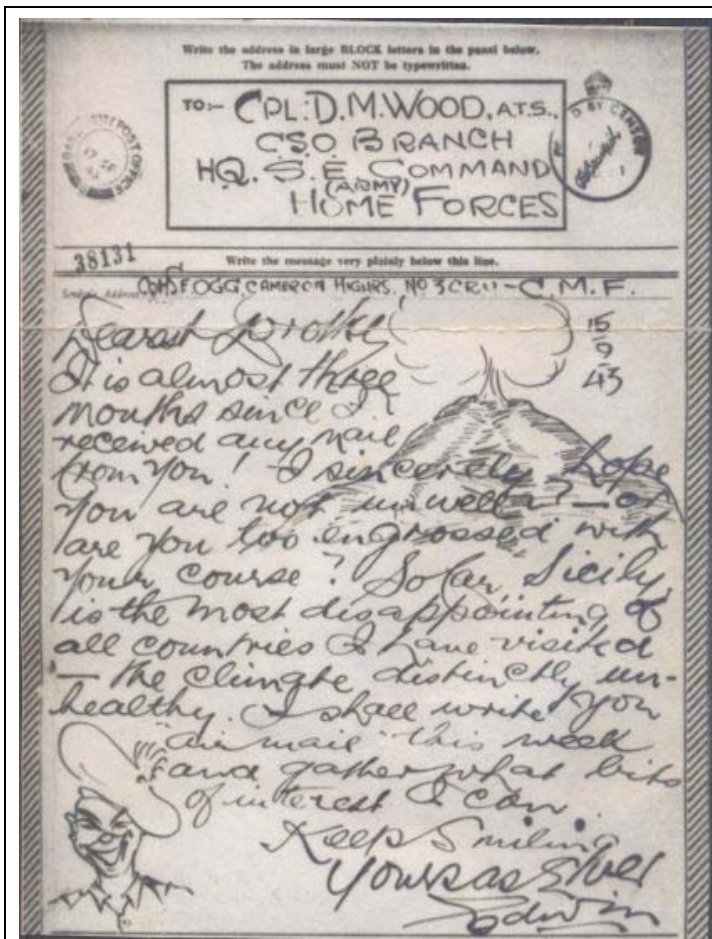 Write the address in large BLOCK letters in the panel below.
The address must NOT be typewritten.
TO:- CPL: D. M. WOOD, A.T.S.,
C.S.O BRANCH
HQ. S. E. COMMAND
(ARMY)
HOME FORCES
POST OFFICE
BY CENSOR
38131
Write the message very plainly below this line.
OGG, CAMERON HIGHRS, No 3 CRU - C. M. F.
15
9
43
Dearest
It is almost three
months since I
received any mail
from you! I sincerely hope
you are not unwell? - or
are you too engrossed with
your course? So far, Sicily
is the most disappointing of
all countries I have visited
- the climate distinctly un-
healthy. I shall write you
"air mail" this week
and gather what bits
of interest I can.
Keep Smiling
Yours as Ever
Edwin